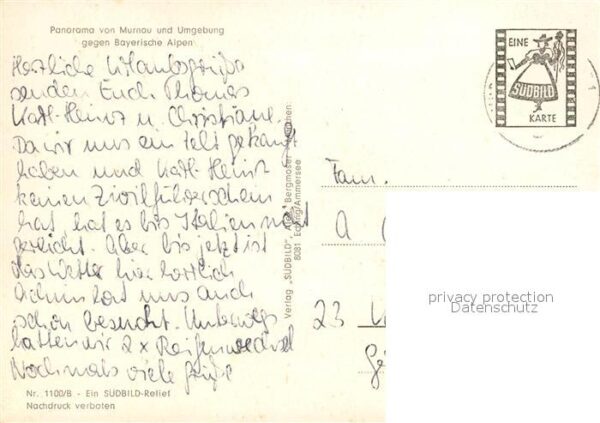 Panorama von Murnau und Umgebung
gegen Bayerische Alpen
Herzliche Urlaubsgrüße
senden Euch Thomas
Karl-Heinz u. Christiane.
Da wir uns ein Zelt gekauft
haben und Karl-Heinz
keinen Zivilführerschein
hat, hat es bis Italien nicht
gereicht. Aber bis jetzt ist
das Wetter hier herrlich
Achim hat uns auch
schon besucht. Unterwegs
hatten wir 2 x Reifenwechsel
Nochmals viele Grüße
Nr. 1100/B - Ein SÜDBILD-Relief
Nachdruck verboten
Verlag „SÜDBILD" Alex Bergmoser München
8081 Eching/Ammersee
EINE
SÜDBILD
KARTE
Fam.
A
23
privacy protection
Datenschutz